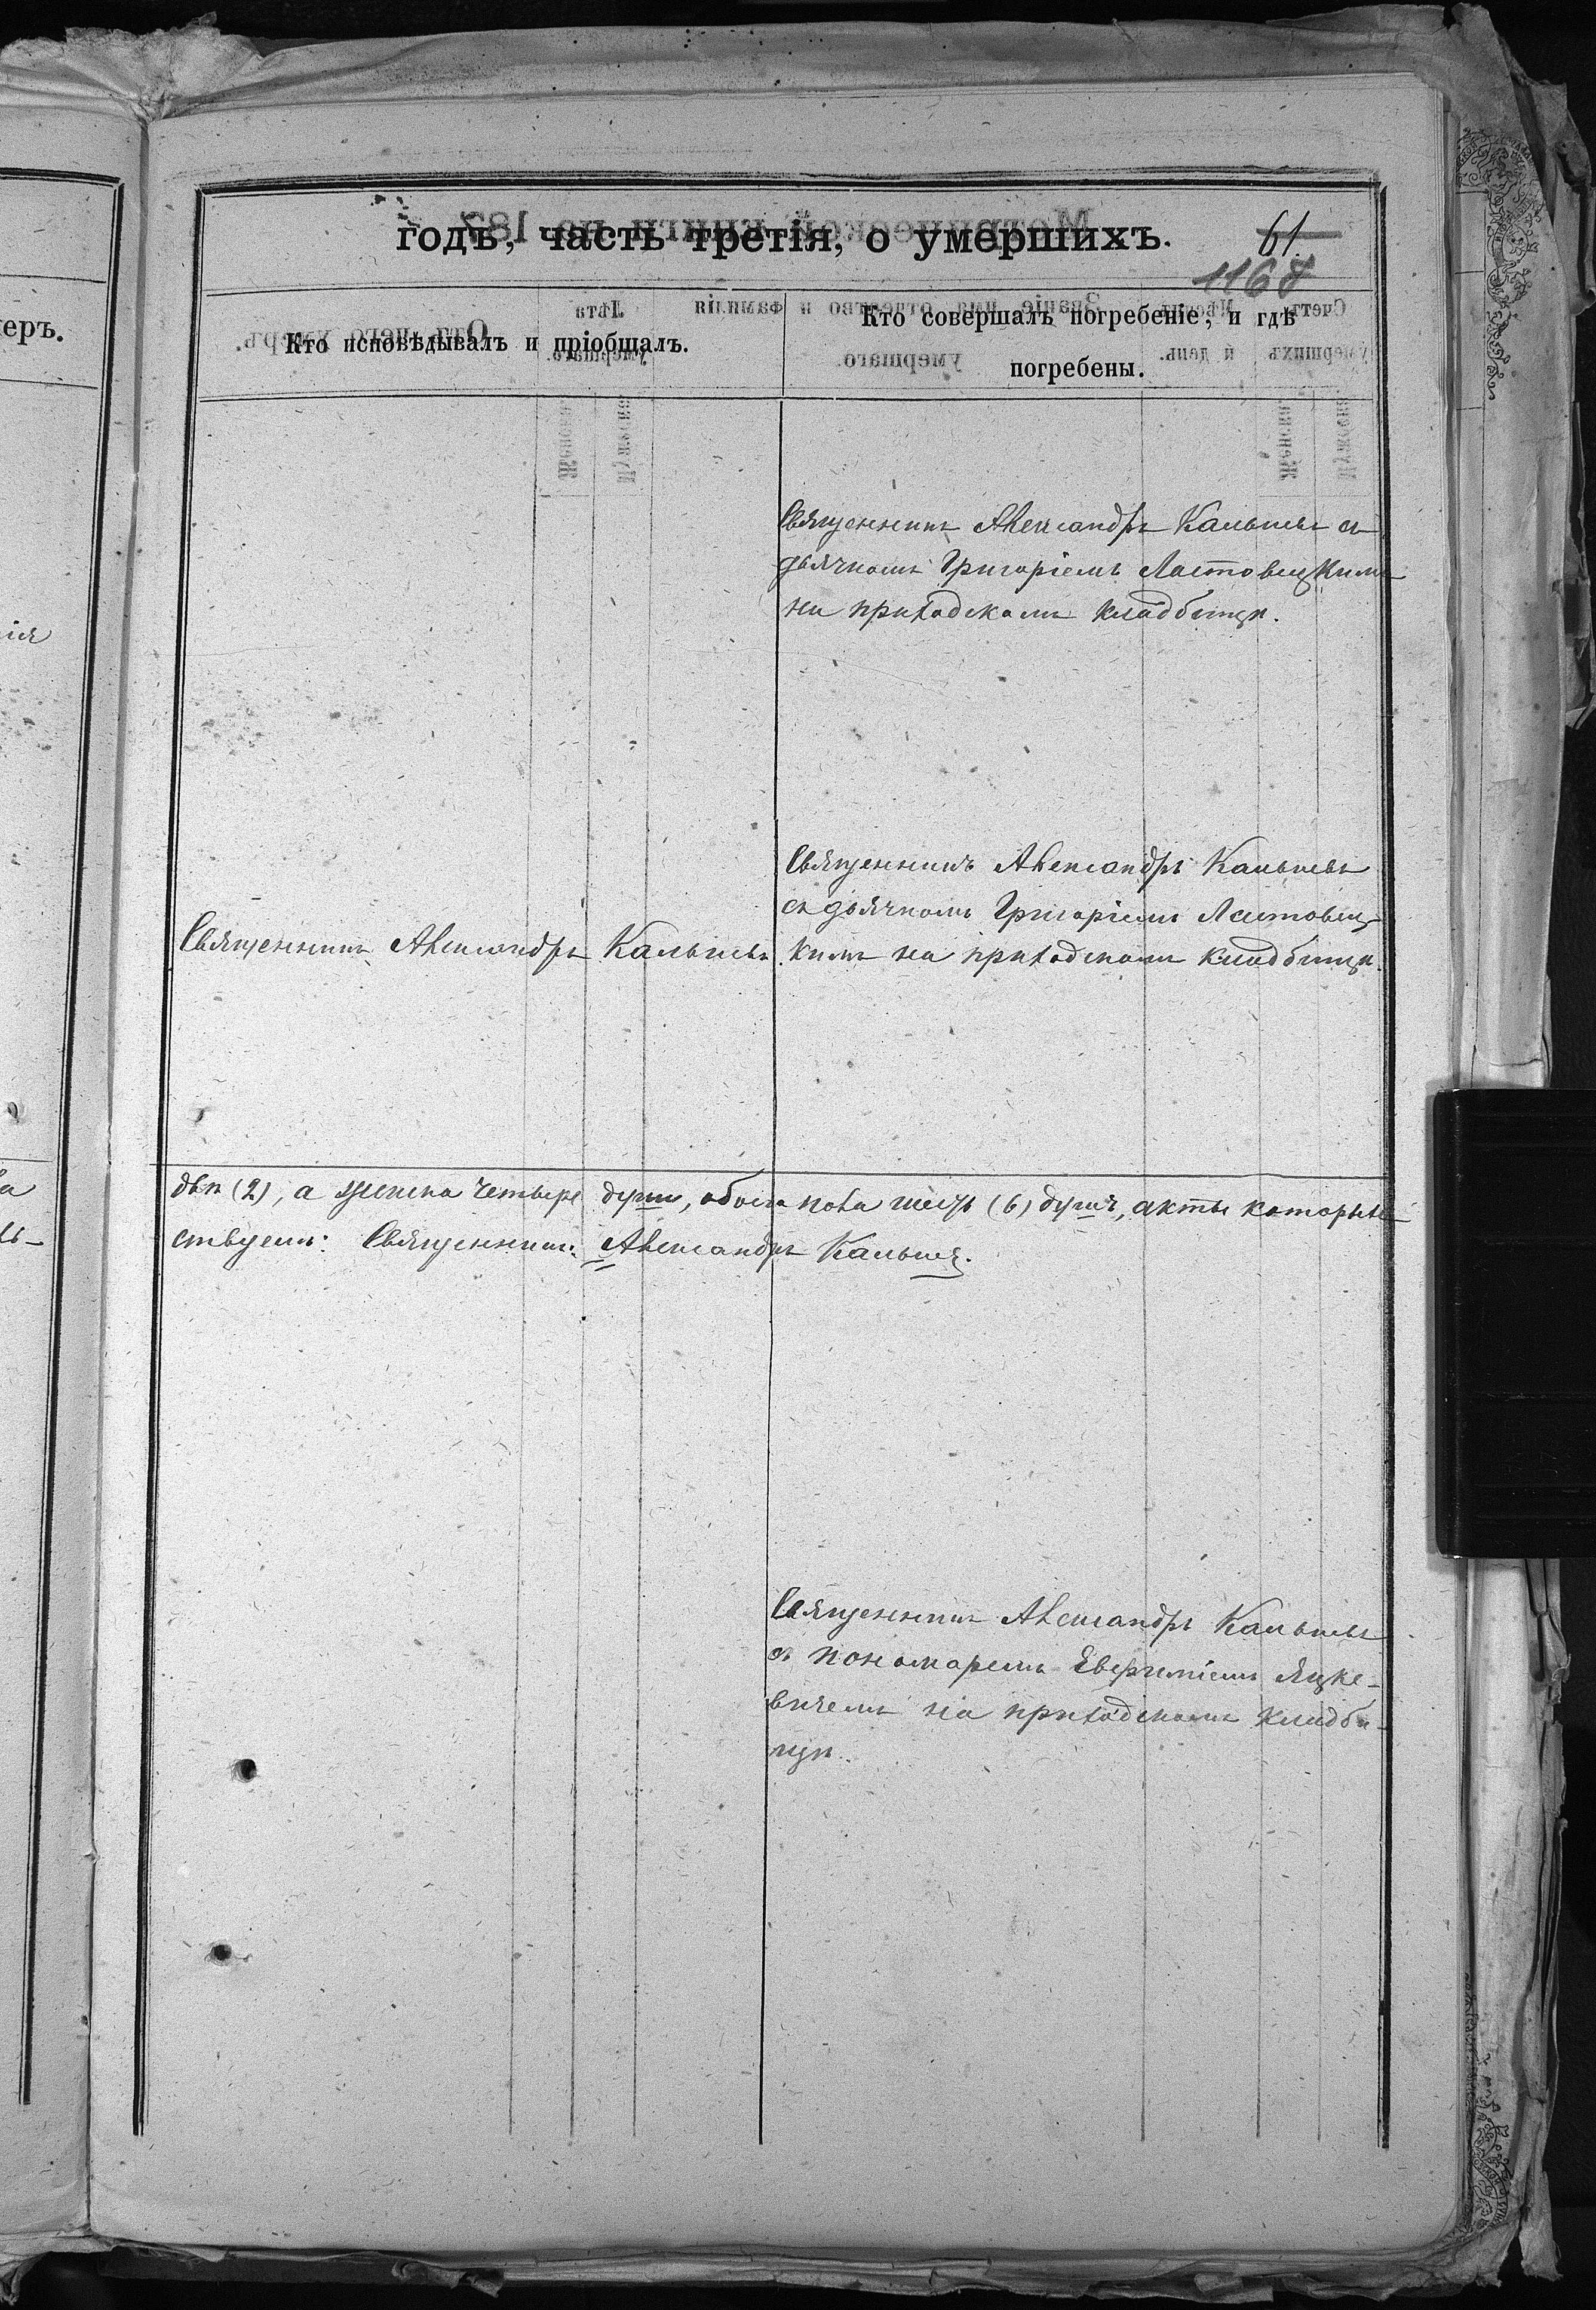 годъ, часть третія, о умершихъ.
61
1168
Кто исповѣдывалъ и пріобщалъ.
Кто совершалъ погребеніе, и гдѣ
погребены.
меръ.
нія
Священникъ Александръ Кальневъ съ
дьячкомъ Григоріемъ Ластовецкимъ
на приходскомъ кладбищѣ.
Священникъ Александръ Кальневъ
съ дьячкомъ Григоріемъ Ластовец-
Священникъ Александръ Кальневъ.
кимъ на приходскомъ кладбищѣ.
двѣ (2), а женска четыре души, обоего пола шесть (6) душъ, акты которыхъ
ствуемъ: Священникъ Александръ
Священникъ Александръ Кальневъ
съ пономаремъ Евфиміемъ Яцке-
вичемъ на приходскомъ кладби-
щѣ.